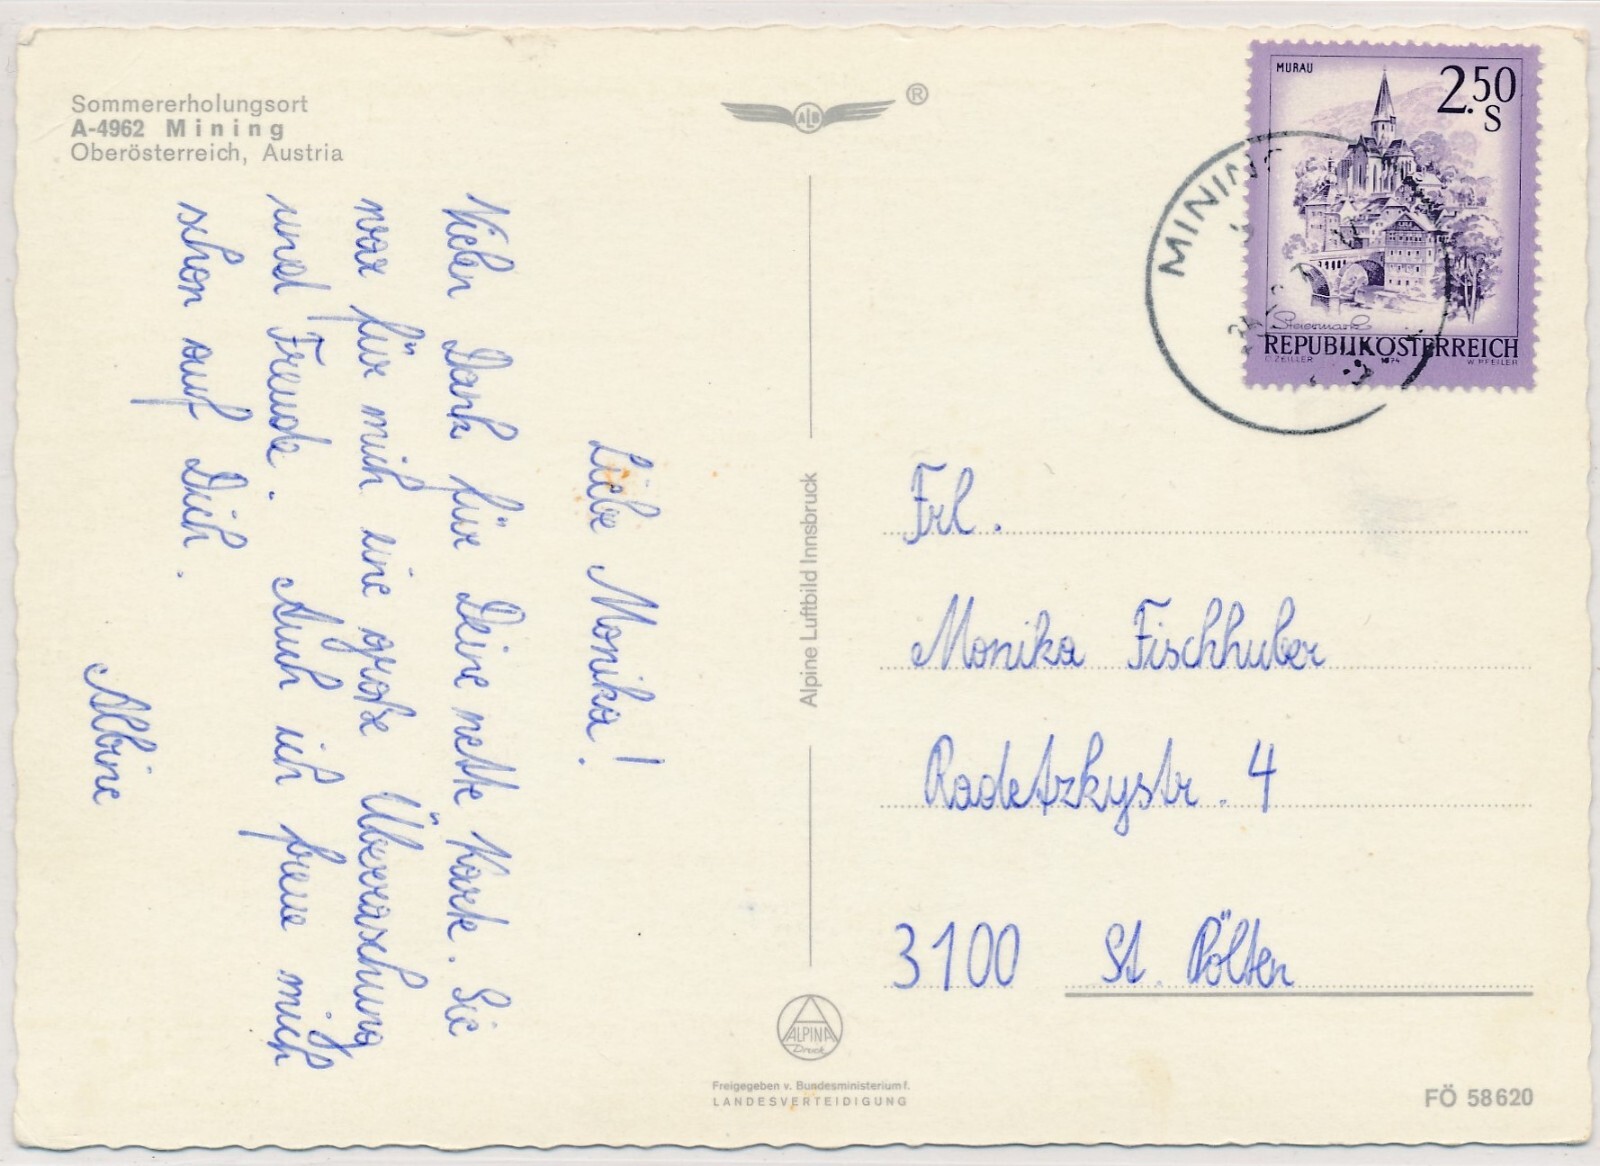 Sommererholungsort
A-4962 Mining
Oberösterreich, Austria
ALB
®
MURAU
2.50
S
Steiermark
REPUBLIK ÖSTERREICH
O. ZEILLER 1974 W. PFEILER
MINING
Liebe Monika!
Vielen Dank für Deine nette Karte. Sie
war für mich eine große Überraschung
und Freude. Auch ich freue mich
schon auf Dich.
Albine
Alpine Luftbild Innsbruck
Frl.
Monika Fischhuber
Radetzkystr. 4
3100 St. Pölten
ALPINA
Druck
Freigegeben v. Bundesministerium f.
LANDESVERTEIDIGUNG
FÖ 58620